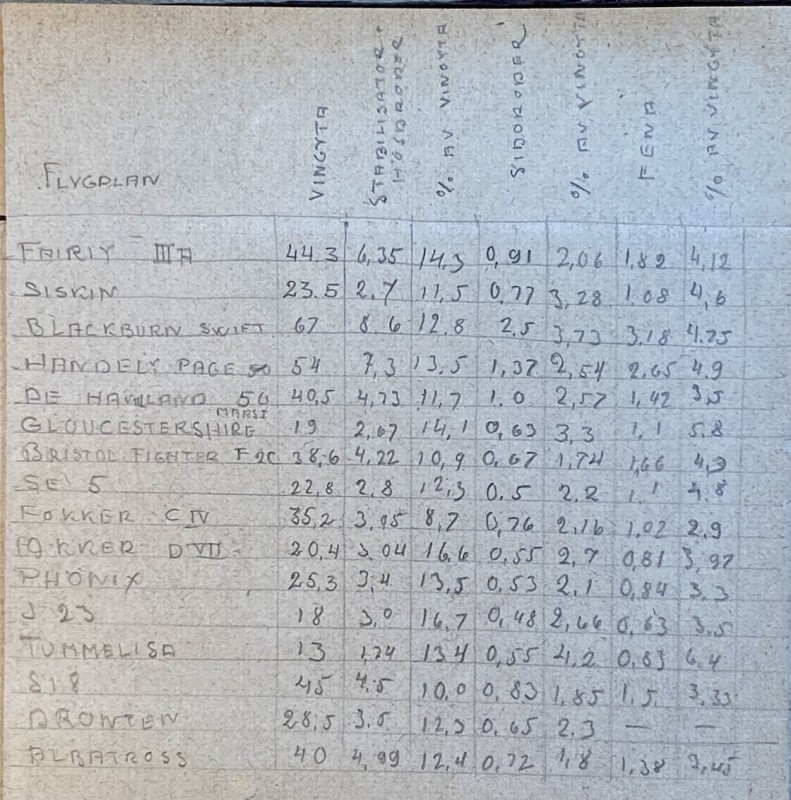 FLYGPLAN VINGYTA STABILISATOR + HÖJDRODER % AV VINGYTA SIDORODER % AV VINGYTA FENA % AV VINGYTA
FAIRIY IIIA 44.3 6,35 14,3 0,91 2,06 1,82 4,12
SISKIN 23.5 2,7 11,5 0,77 3,28 1.08 4,6
BLACKBURN SWIFT 67 8.6 12.8 2.5 3,73 3.18 4.75
HANDELY PAGE 54 7,3 13.5 1,37 2,54 2,65 4.9
DE HAVILLAND 50 40,5 4,73 11,7 1.0 2,57 1,42 3,5
MARSI
GLOUCESTERSHIRE 19 2,67 14,1 0,63 3,3 1,1 5.8
BRISTOL FIGHTER F2C 38,6 4,22 10,9 0,67 1,74 1,66 4,3
SE 5 22,8 2.8 12,3 0.5 2.2 1,1 4.8
FOKKER C IV 35,2 3,05 8,7 0,76 2,16 1,02 2,9
FOKKER D VII 20,4 3,04 16,6 0,55 2,7 0,81 3,97
PHÖNIX 25,3 3,4 13,5 0,53 2,1 0,84 3,3
J 23 18 3,0 16,7 0,48 2,66 0,63 3.5
TUMMELISA 13 1,74 13.4 0,55 4,2 0,83 6.4
S18 45 4.5 10.0 0,83 1,85 1,5 3,33
DRONTEN 28,5 3.5 12,3 0,65 2.3 — —
ALBATROSS 40 4,99 12,4 0,72 1,8 1,38 3,45